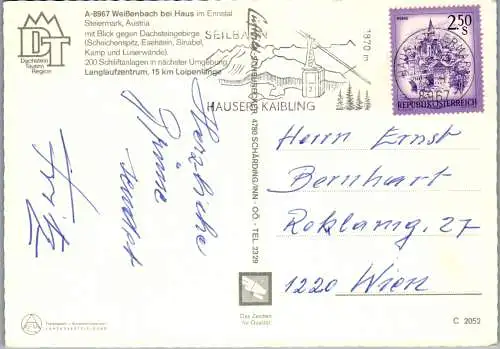 A-8967 Weißenbach bei Haus im Ennstal
Steiermark, Austria
mit Blick gegen Dachsteingebirge
(Scheichenspitz, Eselstein, Sinabel,
Kamp und Luserwände).
200 Schliftanlagen in nächster Umgebung
Langlaufzentrum, 15 km Loipenlänge
DT
Dachstein
Tauern
Region
SEILBAHN
1870 m
HAUSER KAIBLING
8967
2.50
S
REPUBLIK ÖSTERREICH
4780 SCHÄRDING/INN - OÖ - TEL. 2329
Herzliche
Grüsse
sendet
Herrn Ernst
Bernhart
Roklamg. 27
1220 Wien
Das Zeichen
für Qualität
C 2052